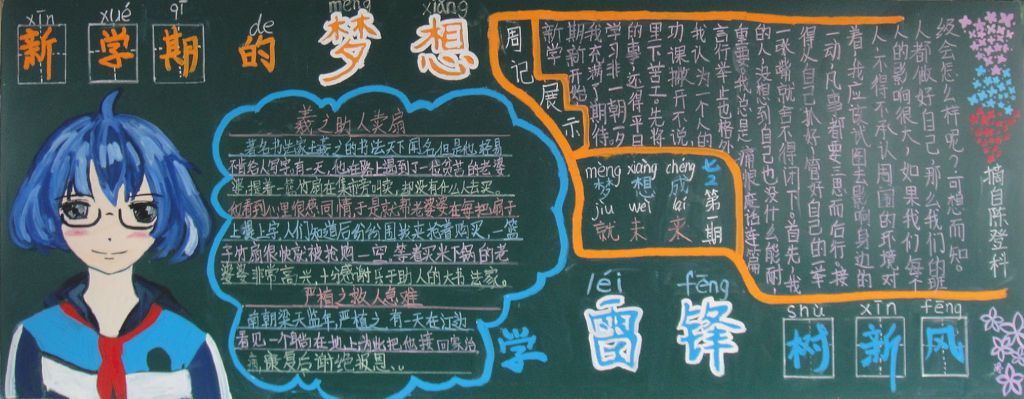 xīn xué qī de mèng xiǎng
新学期的梦想
羲之助人卖扇
著名书法家王羲之的书法天下闻名,但是他轻易
不肯给人写字,有一天,他在路上遇到了一位贫苦的老婆
婆,提着一篮竹扇在集市旁叫卖,却没有什么人去买。
他看到心里很感同情,于是就帮老婆婆在每把扇子
上题上字,人们知道后纷纷围拢来抢着购买,一篮
子竹扇很快就被抢购一空,等着买米下锅的老
婆婆非常高兴,十分感谢乐于助人的大书法家。
严植之救人急难
南朝梁天监年,严植之有一天在江边
看见一个
康复后谢绝报恩
周记展示
新学
期新开始,
我充满了期待。
学习非一朝一夕
的事,远得平日
里下苦工。先将
功课撇开不说,
我认为一个人的
言行举止也格外
重要,我总是
的人,没想到自己也没什么能耐
一张嘴就舍不得闭下。首先,我
得从自己抓好,管好自己的一举
一动,凡事都要三思而后行,接
着,我应该试图去影响身边的
人,不得不承认周围的环境对
人的影响很大,如果我们每个
人都做好自己,那么我们的班
级会怎么样呢?可想而知。
摘自陈登科
七二第一期
mèng xiǎng chéng
梦想成
jiù wèi lái
就未来
léi fēng
学雷锋
shù xīn fēng
树新风